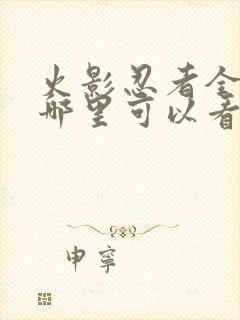 火影忍者全
哪里可以看
申宁